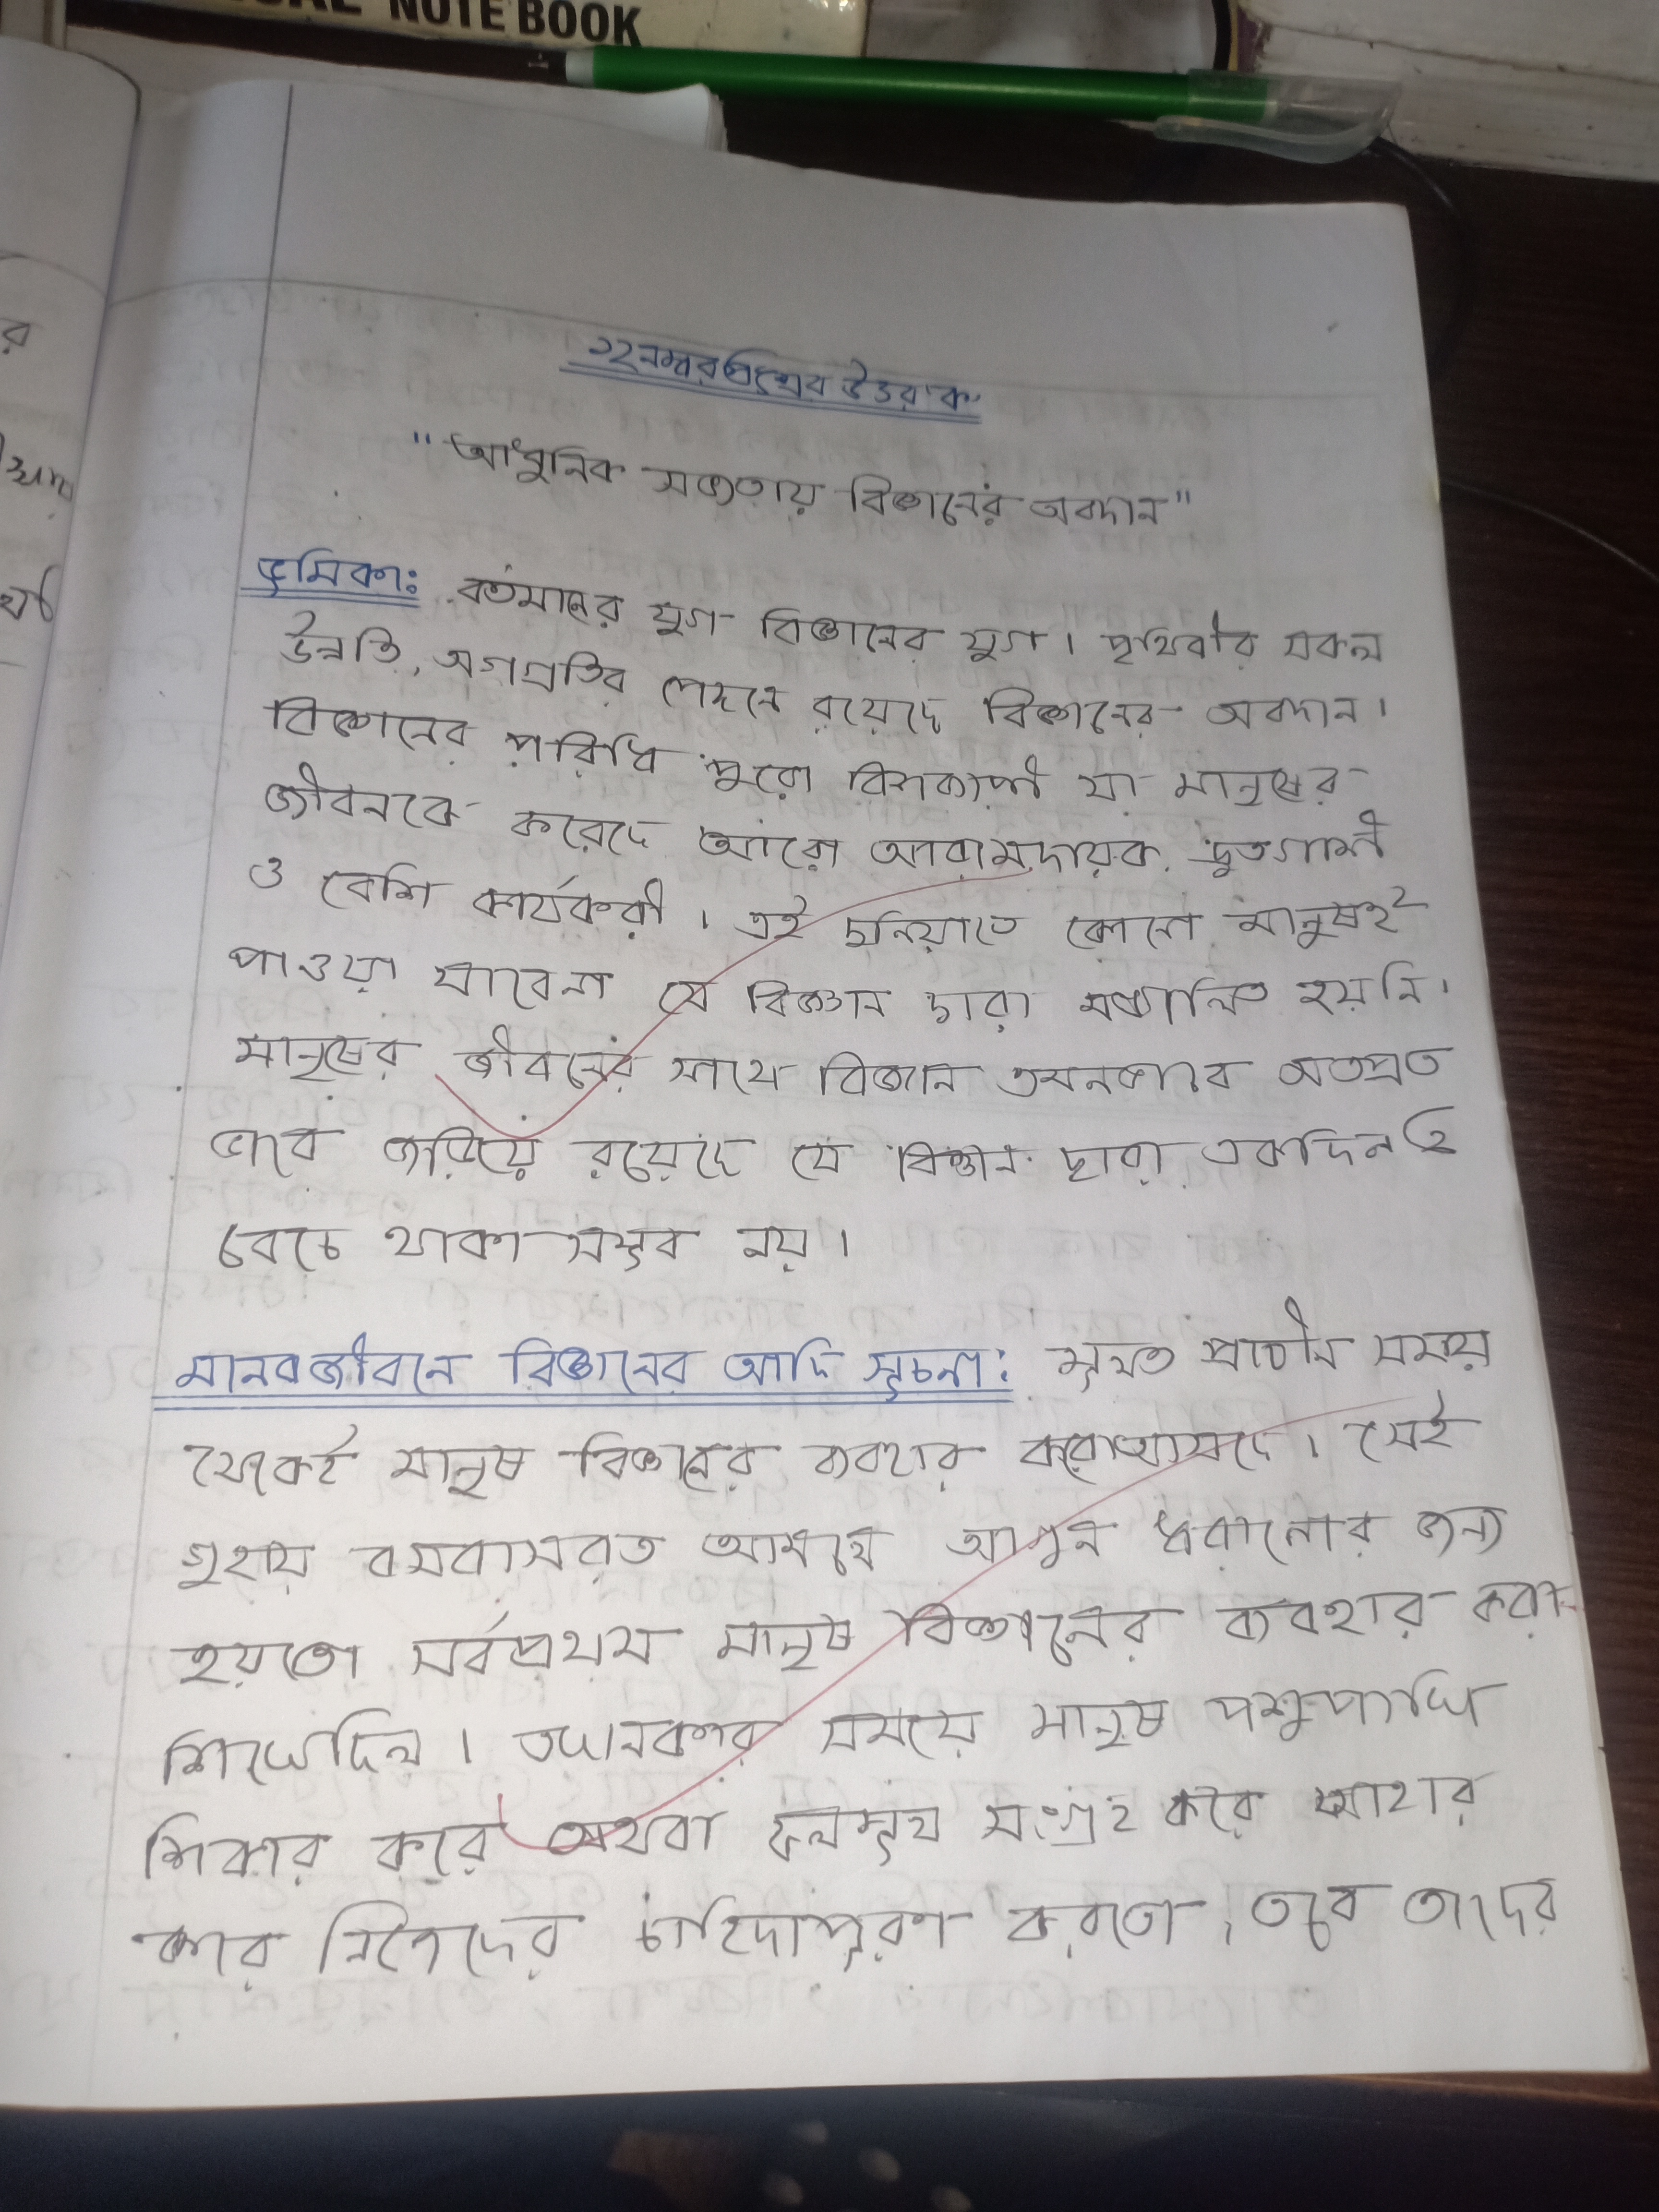 NOTE BOOK
১২ নম্বর প্রশ্নের উত্তর 'ক'
"আধুনিক সভ্যতায় বিজ্ঞানের অবদান"
ভূমিকা: বর্তমানের যুগ বিজ্ঞানের যুগ। পৃথিবীর সকল
উন্নতি, অগ্রগতির পেছনে রয়েছে বিজ্ঞানের অবদান।
বিজ্ঞানের পরিধি পুরো বিশ্বব্যাপী যা মানুষের
জীবনকে করেছে আরো আরামদায়ক, দ্রুতগামী
ও বেশি কার্যকরী। এই দুনিয়াতে কোনো মানুষই
পাওয়া যাবেনা যে বিজ্ঞান দ্বারা হয়নি।
মানুষের জীবনের সাথে বিজ্ঞান এমনভাবে
ভাবে জড়িয়ে রয়েছে যে বিজ্ঞান দ্বারা একদিনও
বেচে থাকা সম্ভব নয়।
মানবজীবনে বিজ্ঞানের আদি সূচনা: মূলত প্রাচীন সময়
থেকেই মানুষ বিজ্ঞানের ব্যবহার করে আসছে। সেই
গুহায় বসবাসরত আগুন ধরানোর জন্য
হয়তো সর্বপ্রথম মানুষ বিজ্ঞানের ব্যবহার করা
শিখেছিল। তখনকার সময়ে মানুষ পশুপাখি
শিকার করে অথবা ফলমূল সংগ্রহ করে আহার
করে নিজেদের চাহিদাপূরণ করতো, তবে তাদের
র